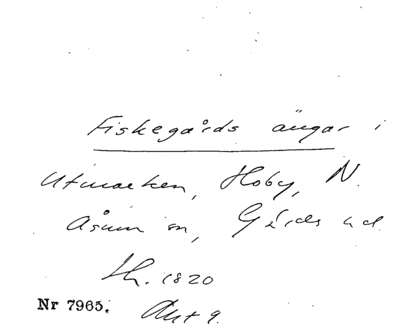 Fiskegårds ängar i
Utmarken, Hoby, N.
Åsum sn, Gärds hd
Sk. 1820
Nr 7965. Akt 9.